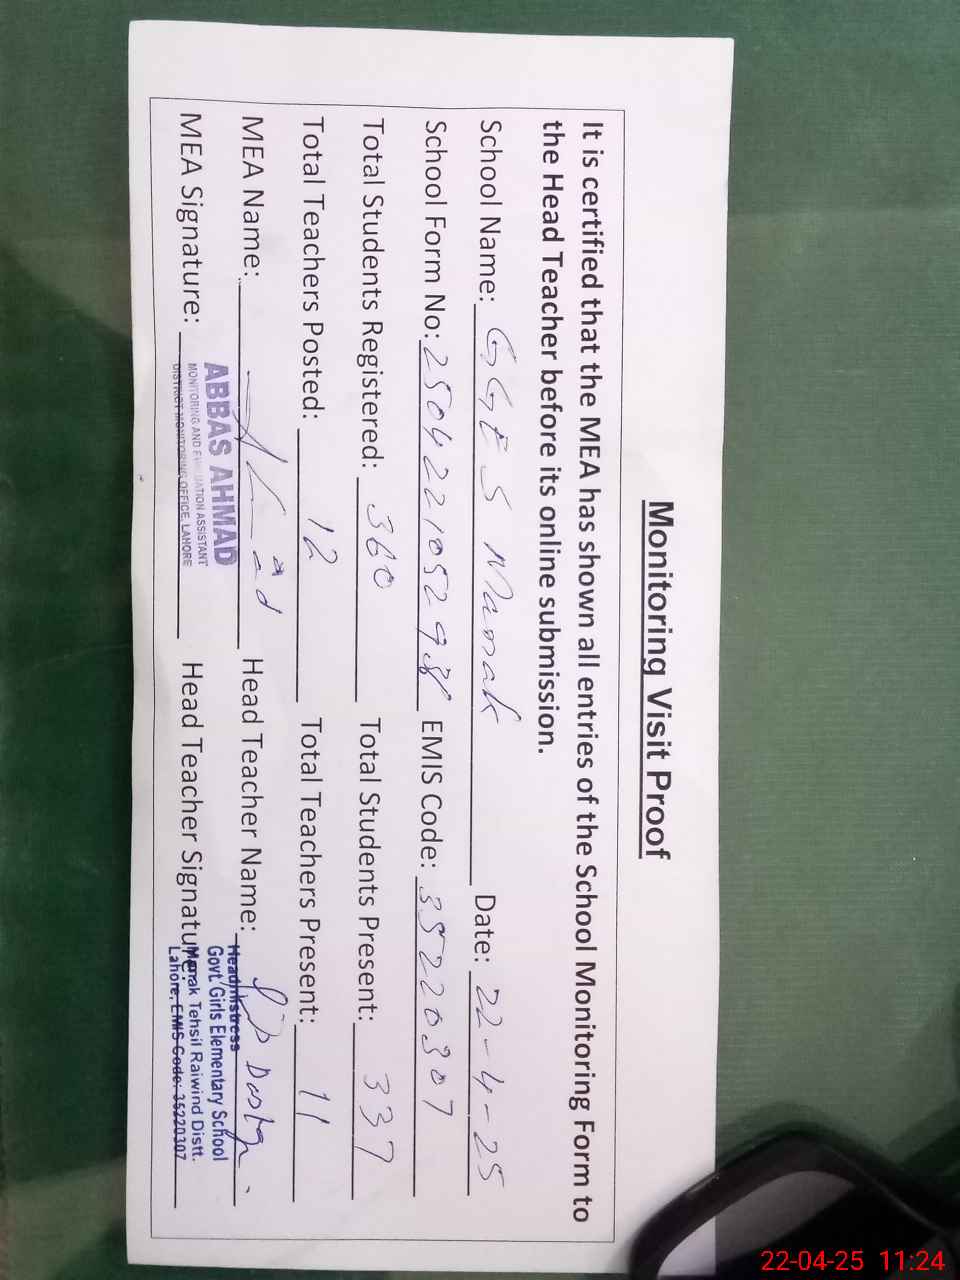 Monitoring Visit Proof
It is certified that the MEA has shown all entries of the School Monitoring Form to
the Head Teacher before its online submission.
School Name: GGES Manak Date: 22-4-25
School Form No: 250422105298 EMIS Code: 35220307
Total Students Registered: 360 Total Students Present: 337
Total Teachers Posted: 12 Total Teachers Present: 11
MEA Name: Head Teacher Name:
MEA Signature: Head Teacher Signature:
ABBAS AHMAD
MONITORING AND EVALUATION ASSISTANT
DISTRICT MONITORING OFFICE, LAHORE
Headmistress
Govt. Girls Elementary School
Manak Tehsil Raiwind Distt.
Lahore, EMIS Code: 35220307
22-04-25 11:24